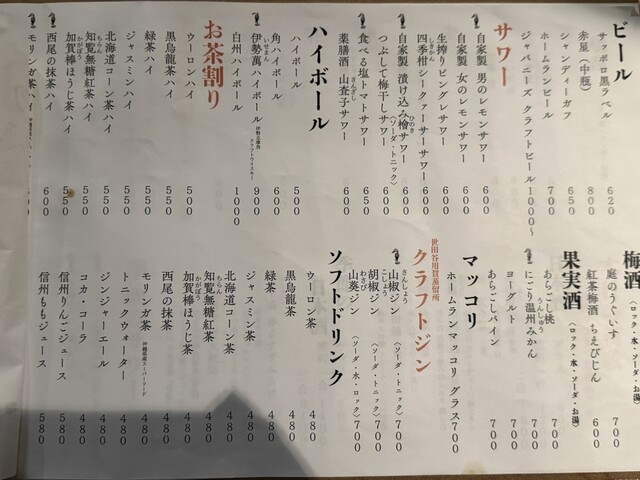 ビール
サッポロ黒ラベル 620
赤星(中瓶) 800
シャンディーガフ 650
ホームランビール 700
ジャパニーズ クラフトビール 1000~
サワー
自家製 男のレモンサワー 600
自家製 女のレモンサワー 600
生搾りピンクレサワー 600
四季柑シークァーサーサワー 600
自家製 漬け込み檜サワー 600
つぶして梅干しサワー(ソーダ・トニック) 600
食べる塩トマトサワー 650
薬膳酒 山査子サワー 600
ハイボール
ハイボール 500
角ハイボール 600
伊勢萬ハイボール 900
白州ハイボール 1000
お茶割り
ウーロンハイ 500
黒烏龍茶ハイ 550
緑茶ハイ 550
ジャスミンハイ 550
北海道コーン茶ハイ 550
知覧無糖紅茶ハイ 550
加賀棒ほうじ茶ハイ 550
西尾の抹茶ハイ 600
モリンガ茶ハイ
梅酒(ロック・水・ソーダ・お湯)
庭のうぐいす 700
紅茶梅酒 ちえびじん 600
果実酒(ロック・水・ソーダ・お湯)
あらごし桃 700
にごり温州みかん 700
ヨーグルト 700
あらごしパイン 700
マッコリ
ホームランマッコリ グラス 700
世田谷用賀蒸留所
クラフトジン
山椒ジン(ソーダ・トニック) 700
胡椒ジン(ソーダ・トニック) 700
山葵ジン(ソーダ・水・ロック) 700
ソフトドリンク
ウーロン茶 480
黒烏龍茶 480
緑茶 480
ジャスミン茶 480
北海道コーン茶 480
知覧無糖紅茶 480
加賀棒ほうじ茶 480
西尾の抹茶 480
モリンガ茶 沖縄県産スーパーフード 480
トニックウォーター 480
ジンジャーエール 480
コカ・コーラ 480
信州りんごジュース 580
信州ももジュース 580